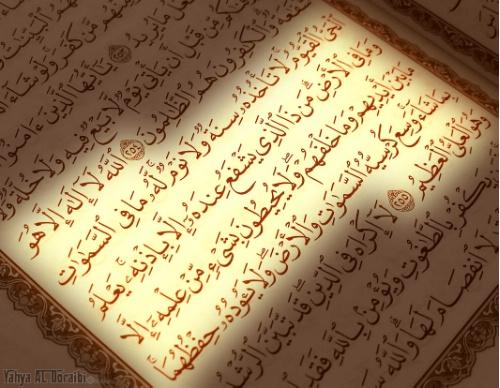 مَّن كَفَرَ وَلَوْ شَآءَ
يَفْعَلُ مَا يُرِيدُ ٢٥٣ يَٰٓأَيُّهَا ٱلَّذِينَ ءَامَنُوٓا۟
مِّن قَبْلِ أَن يَأْتِىَ يَوْمٌ لَّا بَيْعٌ فِيهِ وَلَا خُلَّةٌ وَلَا
وَٱلْكَٰفِرُونَ هُمُ ٱلظَّٰلِمُونَ ٢٥٤ ٱللَّهُ لَآ إِلَٰهَ إِلَّا هُوَ
ٱلْحَىُّ ٱلْقَيُّومُ ۚ لَا تَأْخُذُهُۥ سِنَةٌ وَلَا نَوْمٌ ۚ لَّهُۥ مَا فِى ٱلسَّمَٰوَٰتِ
وَمَا فِى ٱلْأَرْضِ ۗ مَن ذَا ٱلَّذِى يَشْفَعُ عِندَهُۥٓ إِلَّا بِإِذْنِهِۦ ۚ يَعْلَمُ
مَا بَيْنَ أَيْدِيهِمْ وَمَا خَلْفَهُمْ ۖ وَلَا يُحِيطُونَ بِشَىْءٍ مِّنْ عِلْمِهِۦٓ إِلَّا
بِمَا شَآءَ ۚ وَسِعَ كُرْسِيُّهُ ٱلسَّمَٰوَٰتِ وَٱلْأَرْضَ ۖ وَلَا يَـُٔودُهُۥ حِفْظُهُمَا ۚ
وَهُوَ ٱلْعَلِىُّ ٱلْعَظِيمُ ٢٥٥ لَآ إِكْرَاهَ فِى ٱلدِّينِ ۖ قَد تَّبَيَّنَ ٱلرُّشْدُ
يَكْفُرْ بِٱلطَّٰغُوتِ وَيُؤْمِنۢ بِٱللَّهِ فَقَدِ
لَا ٱنفِصَامَ لَهَا ۗ وَٱللَّهُ
Yahya AL Doraibi